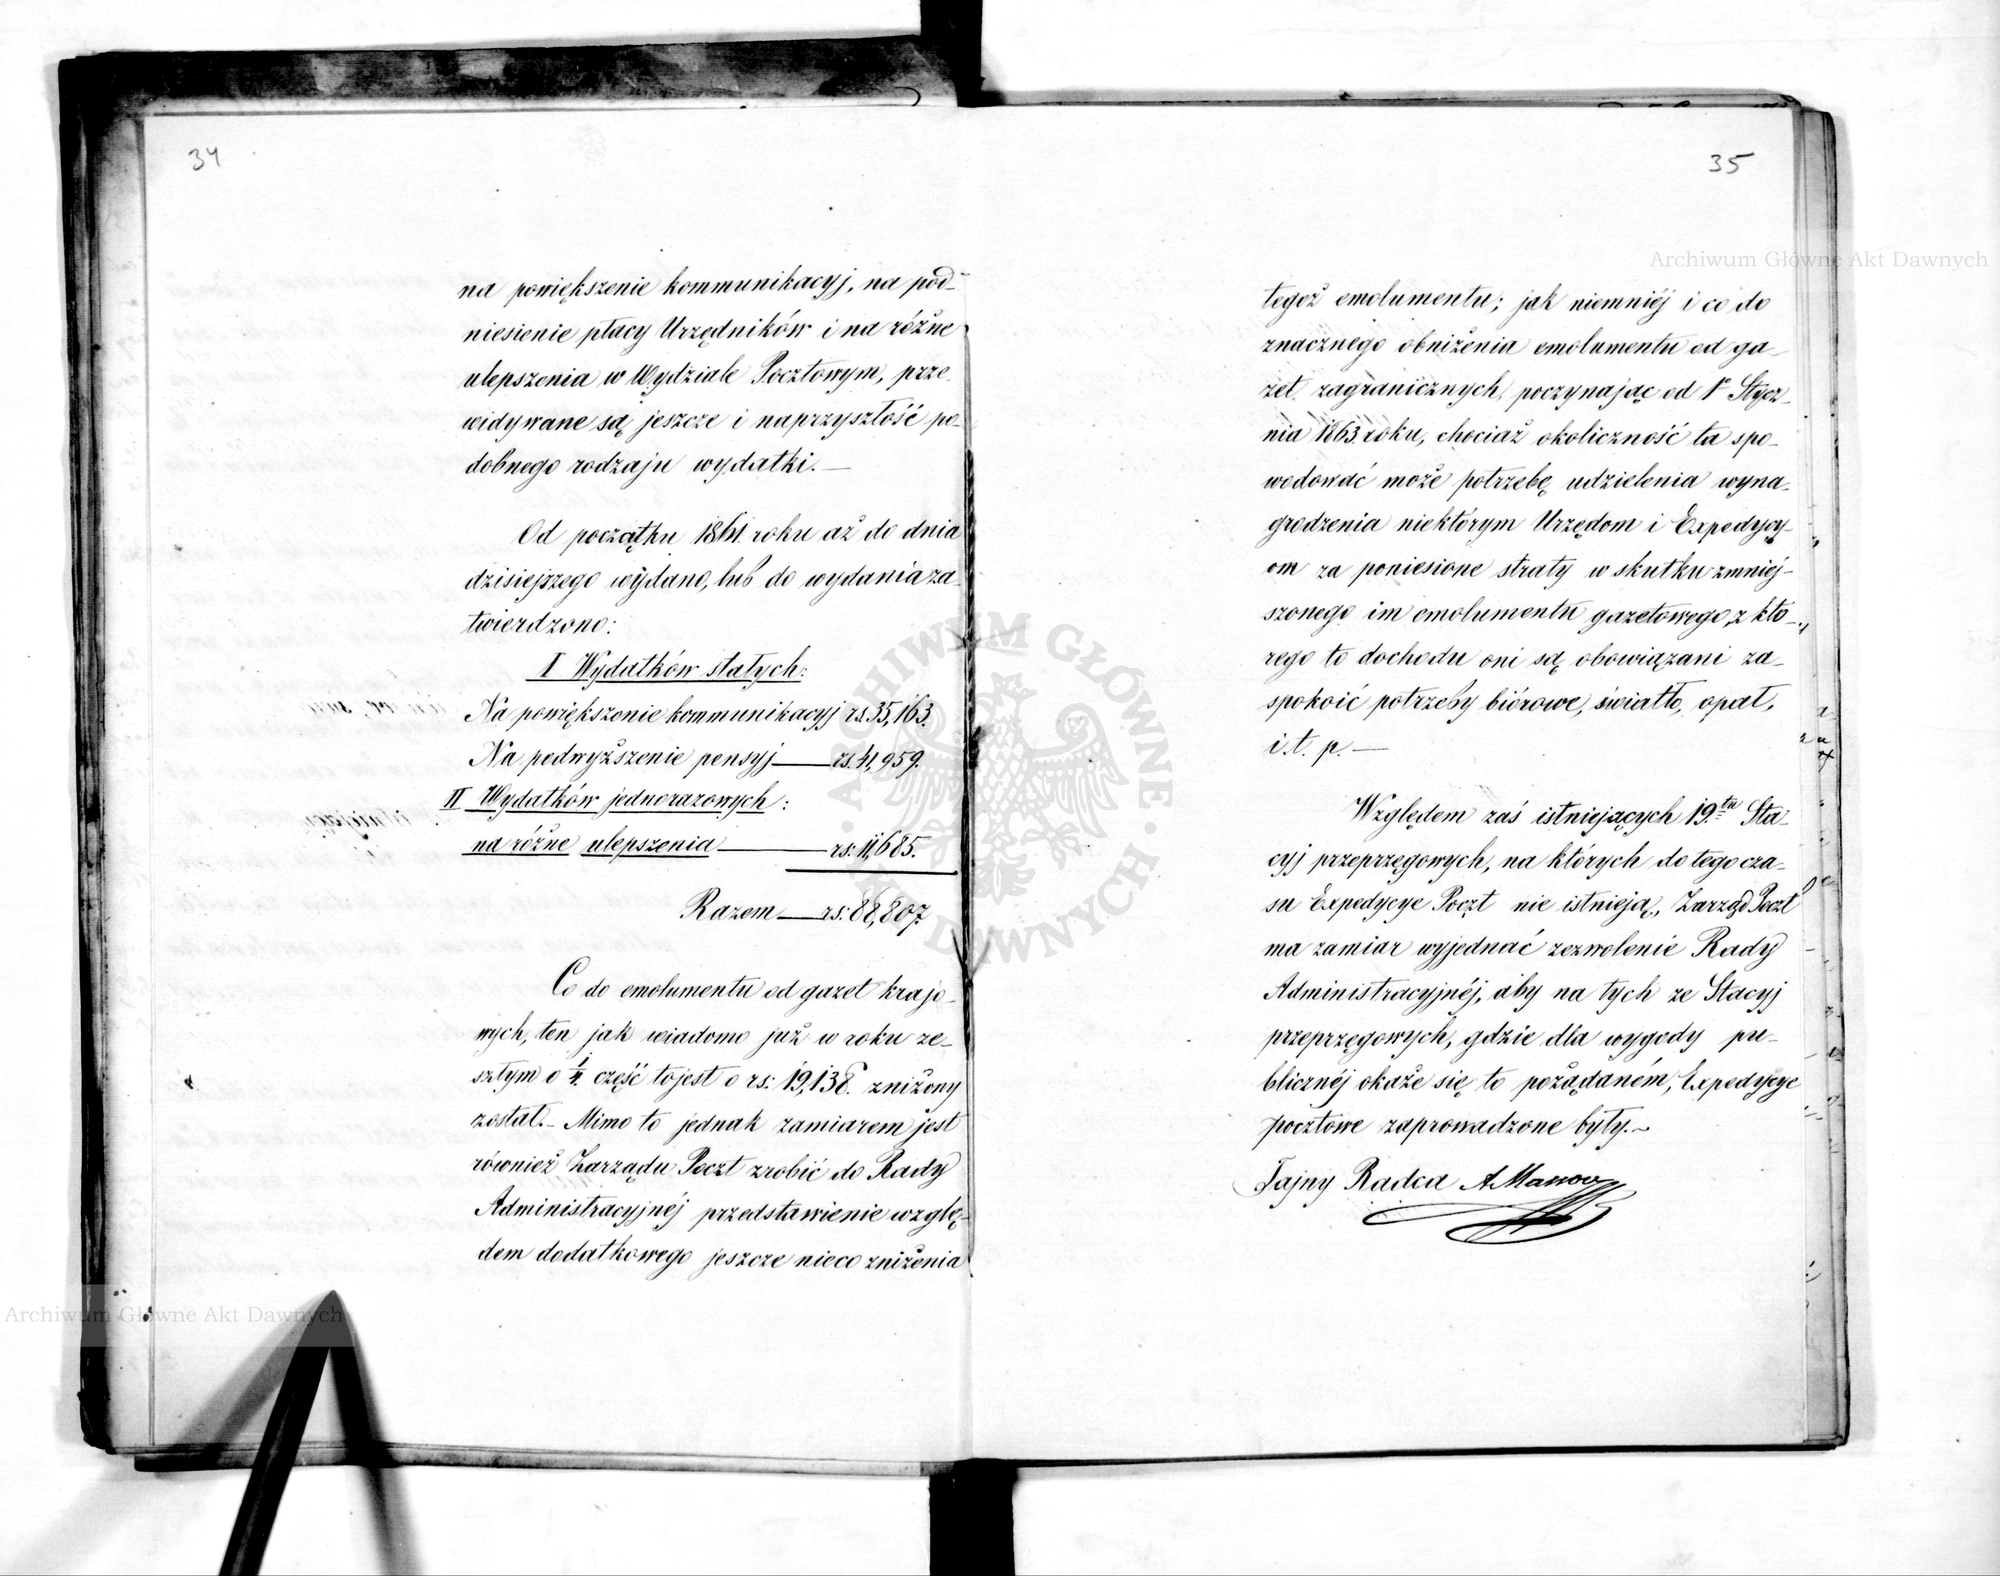 34
na powiększenie kommunikacyj, na pod-
niesienie płacy Urzędników i na różne
ulepszenia w Wydziale Pocztowym, prze-
widywane są jeszcze i naprzyszłość po-
dobnego rodzaju wydatki. —
Od początku 1861 roku aż do dnia
dzisiejszego wydano, lub do wydania za-
twierdzono:
I Wydatków stałych:
Na powiększenie kommunikacyj rs. 35,163.
Na podwyższenie pensyj — rs. 41,959.
II Wydatków jednorazowych:
na różne ulepszenia — rs: 11,685.
Razem — rs: 88,807
Co do emolumentu od gazet krajo-
wych, ten jak wiadomo już w roku ze-
szłym o 1/4 część tojest o rs: 19,138. zniżony
został. - Mimo to jednak zamiarem jest
również Zarządu Poczt zrobić do Rady
Administracyjnéj przedstawienie wzglę-
dem dodatkowego jeszcze nieco zniżenia
35
tegoż emolumentu; jak niemniéj i co do
znacznego obniżenia emolumentu od ga-
zet zagranicznych, poczynając od 1º Stycz-
nia 1863. roku, chociaż okoliczność ta spo-
wodować może potrzebę udzielenia wyna-
grodzenia niektórym Urzędom i Expedycy-
om za poniesione straty w skutku zmniéj-
szonego im emolumentu gazetowego, z któ-
rego to dochodu oni są obowiązani za-
spokoić potrzeby biórowe, światło, opał,
i. t. p. —
Względem zaś istniejących 19.tu Sta-
cyj przeprzęgowych, na których do tego cza-
su Expedycye Poczt nie istnieją, Zarząd Poczt
ma zamiar wyjednać zezwolenie Rady
Administracyjnéj, aby na tych ze Stacyj
przeprzęgowych, gdzie dla wygody pu-
blicznéj okaże się to pożądaném, Expedycye
pocztowe zaprowadzone były. ~
Tajny Radca A Manow
Archiwum Główne Akt Dawnych
Archiwum Główne Akt Dawnych
ARCHIWUM GŁÓWNE AKT DAWNYCH